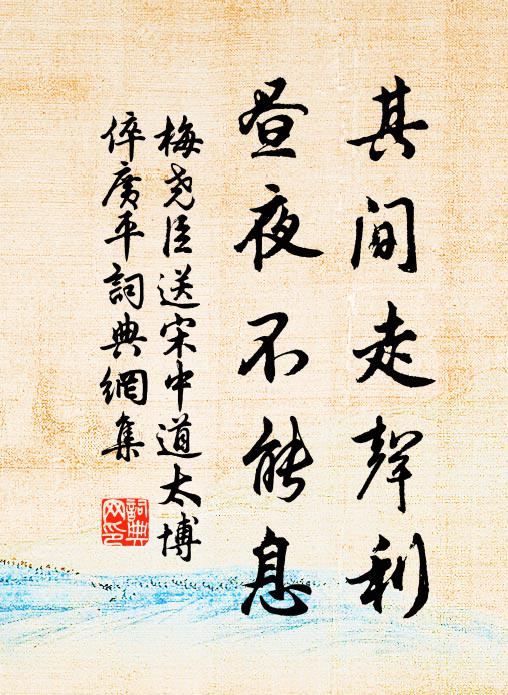 其間走聲利
晝夜不能息
梅堯臣送宋中道太博
倅廣平詞典網集
詞典
网印